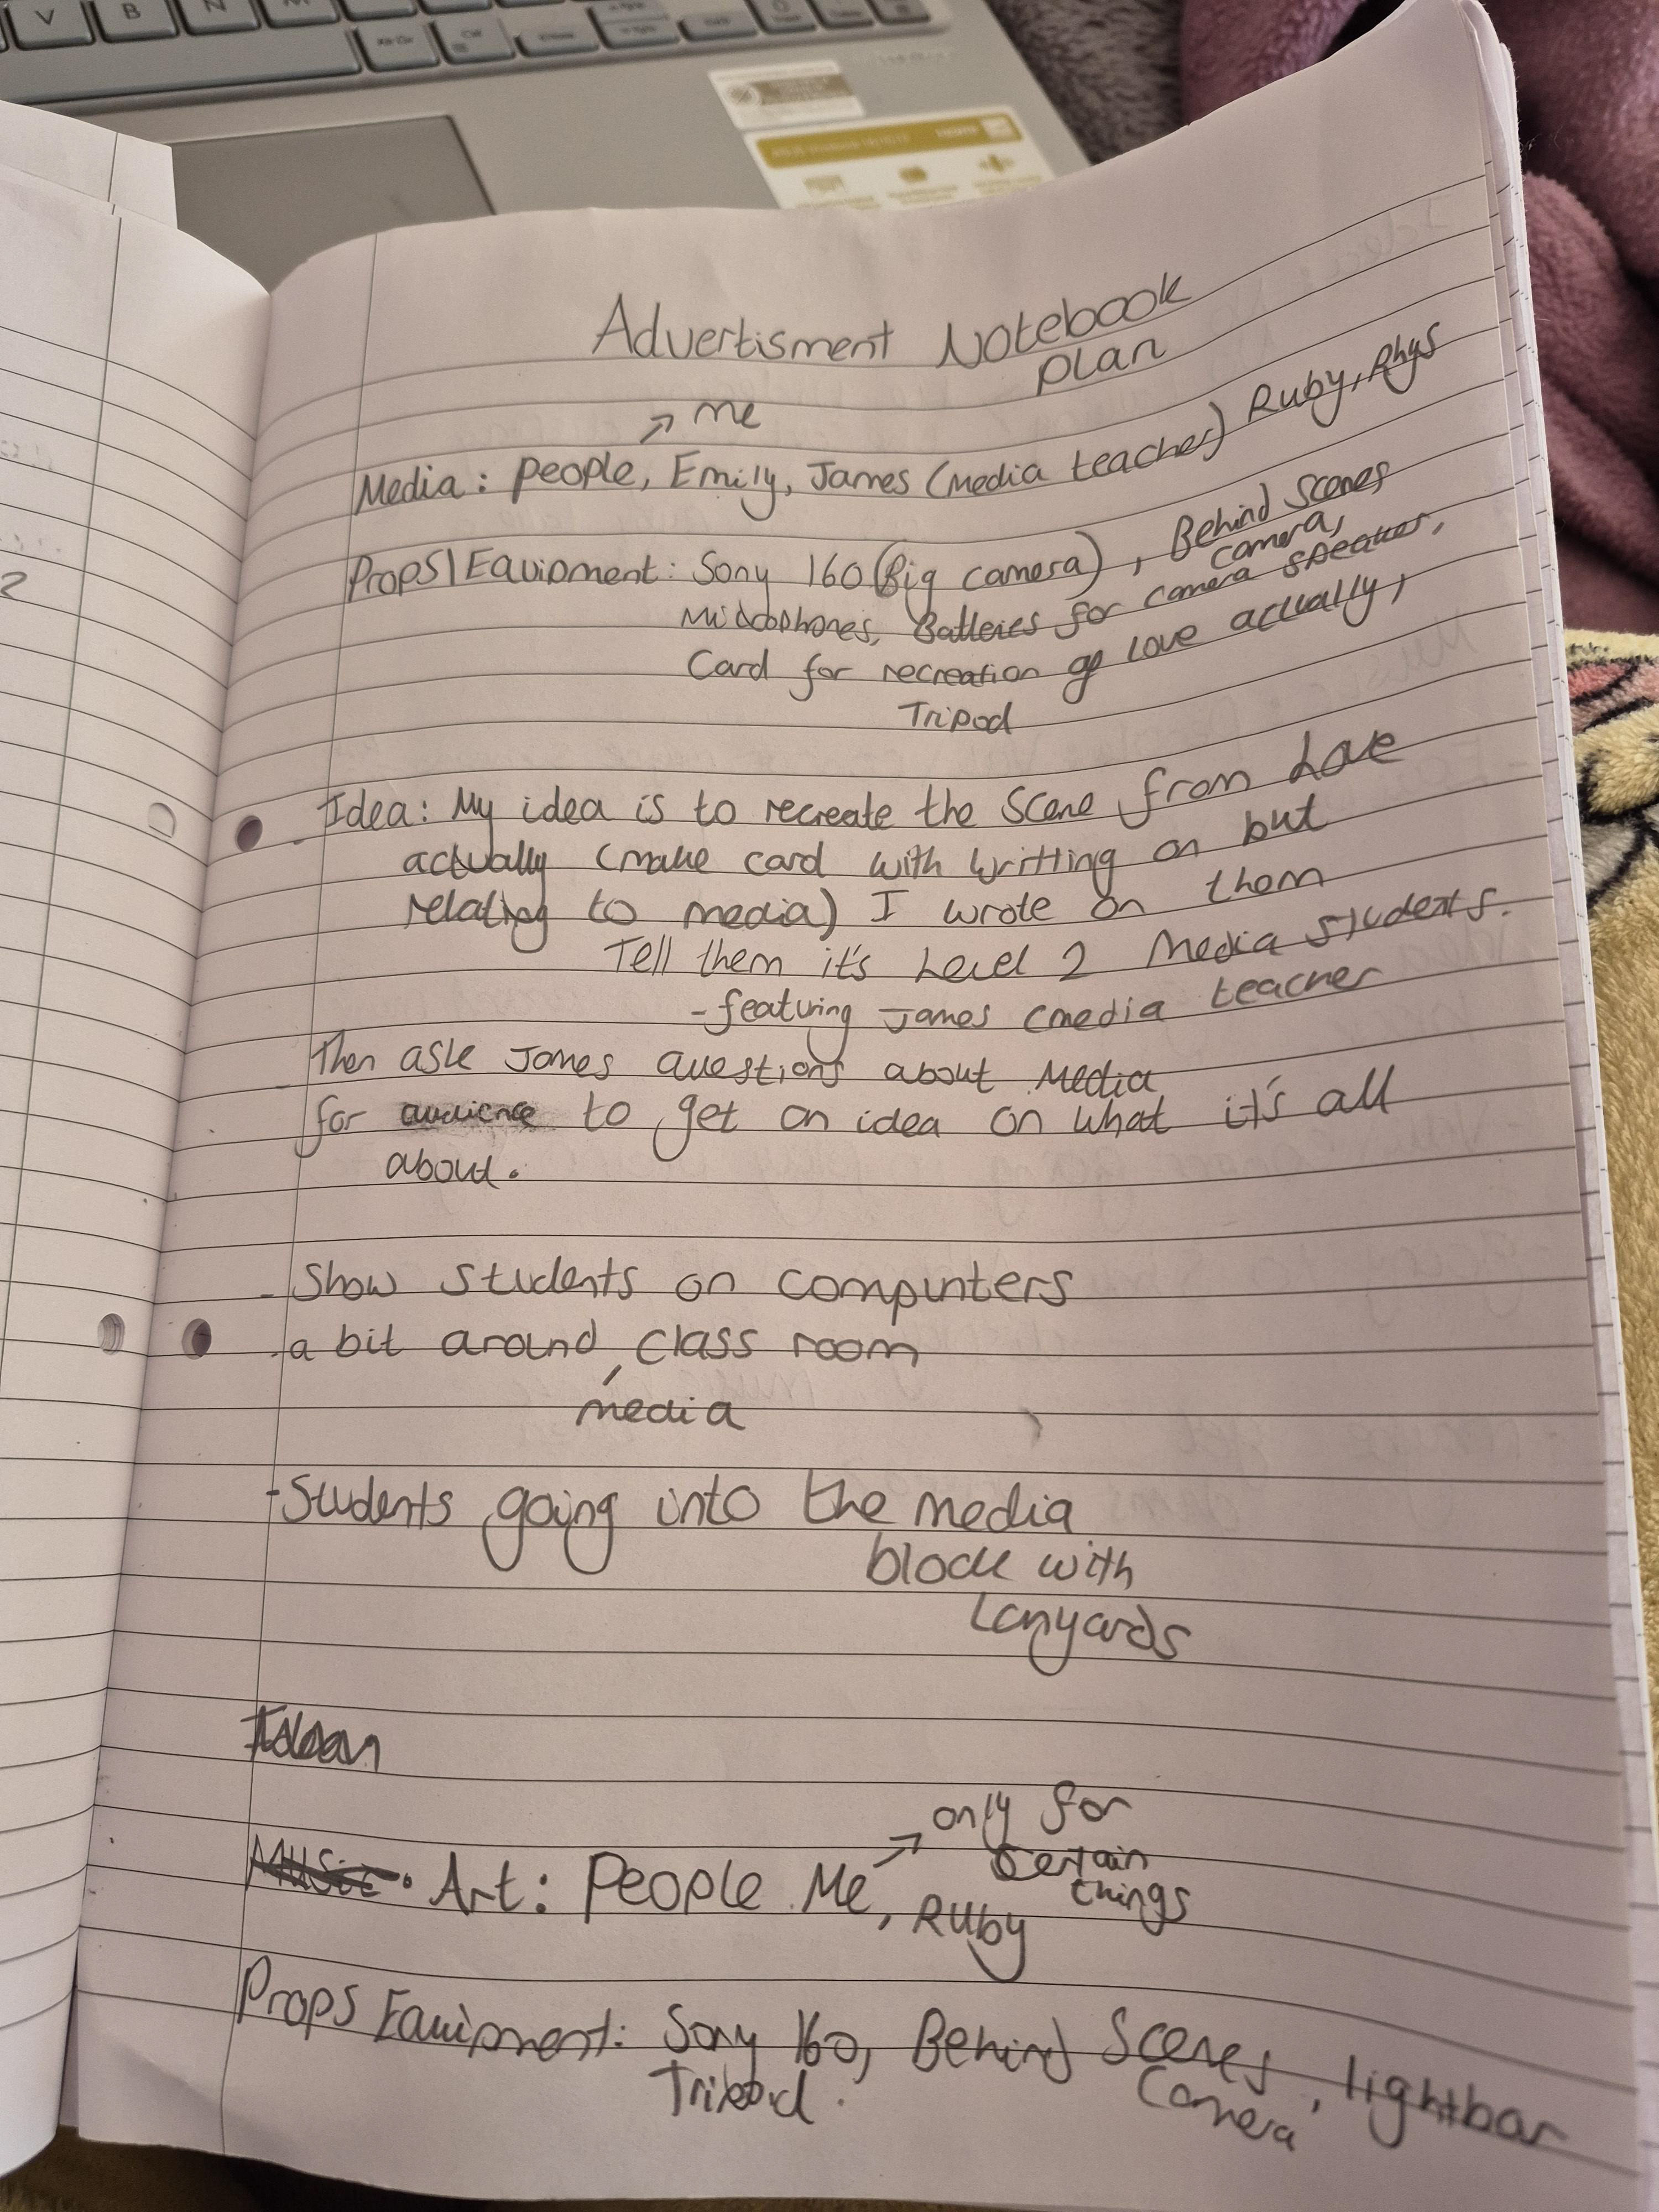 V B N M
Alt Gr Ctrl
Advertisment Notebook
plan
↗ me
Media: People, Emily, James (Media teacher) Ruby, Rhys
Props/Equipment: Sony 160 (Big camera), Behind Scenes
camera,
Microphones, Batteries for camera speaker,
Card for recreation of Love actually,
Tripod
Idea: My idea is to recreate the scene from Love
actually (make card with writting on but
relating to media) I wrote on them
Tell them it's Level 2 Media students.
- featuring James (media teacher
- Then ask James questions about Media
- for audience to get an idea on what it's all
about.
- Show students on compunters
- a bit around, class room
media
- Students going into the media
block with
Lanyards
Music. Art: People Me, Ruby
↗ only for
certain
things
Props Equipment: Sony 160, Behind Scenes, lightbar
Tripod. Camera